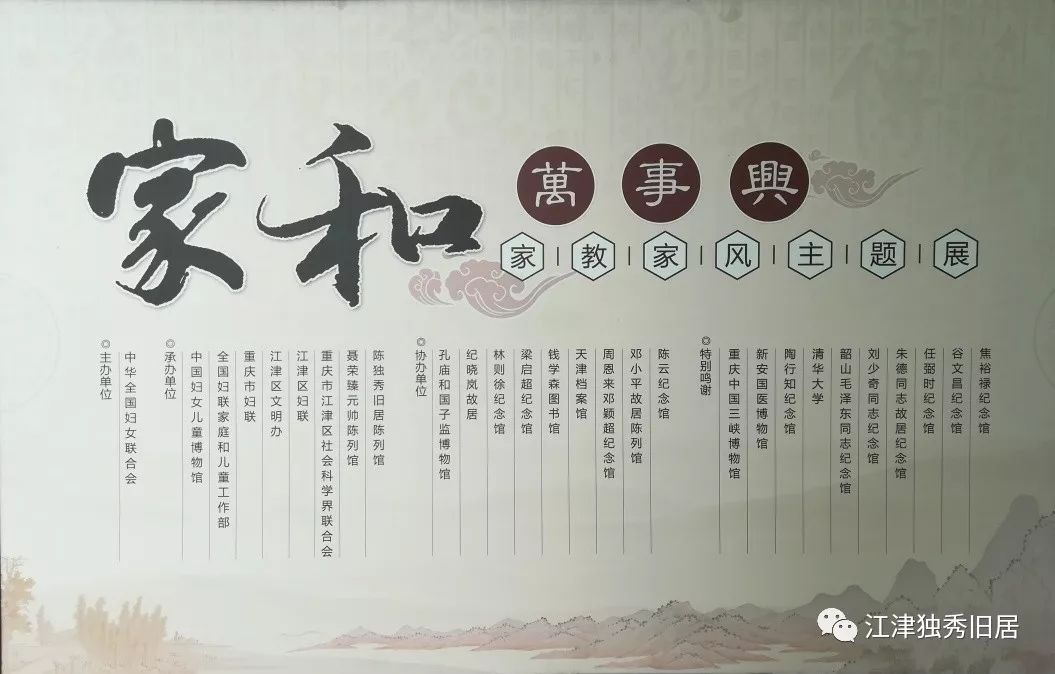 家和
萬事興
家教家风主题展
◎主办单位
中华全国妇女联合会
◎承办单位
中国妇女儿童博物馆
全国妇联家庭和儿童工作部
重庆市妇联
江津区文明办
江津区妇联
重庆市江津区社会科学界联合会
聂荣臻元帅陈列馆
陈独秀旧居陈列馆
◎协办单位
孔庙和国子监博物馆
纪晓岚故居
林则徐纪念馆
梁启超纪念馆
钱学森图书馆
天津档案馆
周恩来邓颖超纪念馆
邓小平故居陈列馆
陈云纪念馆
◎特别鸣谢
重庆中国三峡博物馆
新安国医博物馆
陶行知纪念馆
清华大学
韶山毛泽东同志纪念馆
刘少奇同志纪念馆
朱德同志故居纪念馆
任弼时纪念馆
谷文昌纪念馆
焦裕禄纪念馆
江津独秀旧居